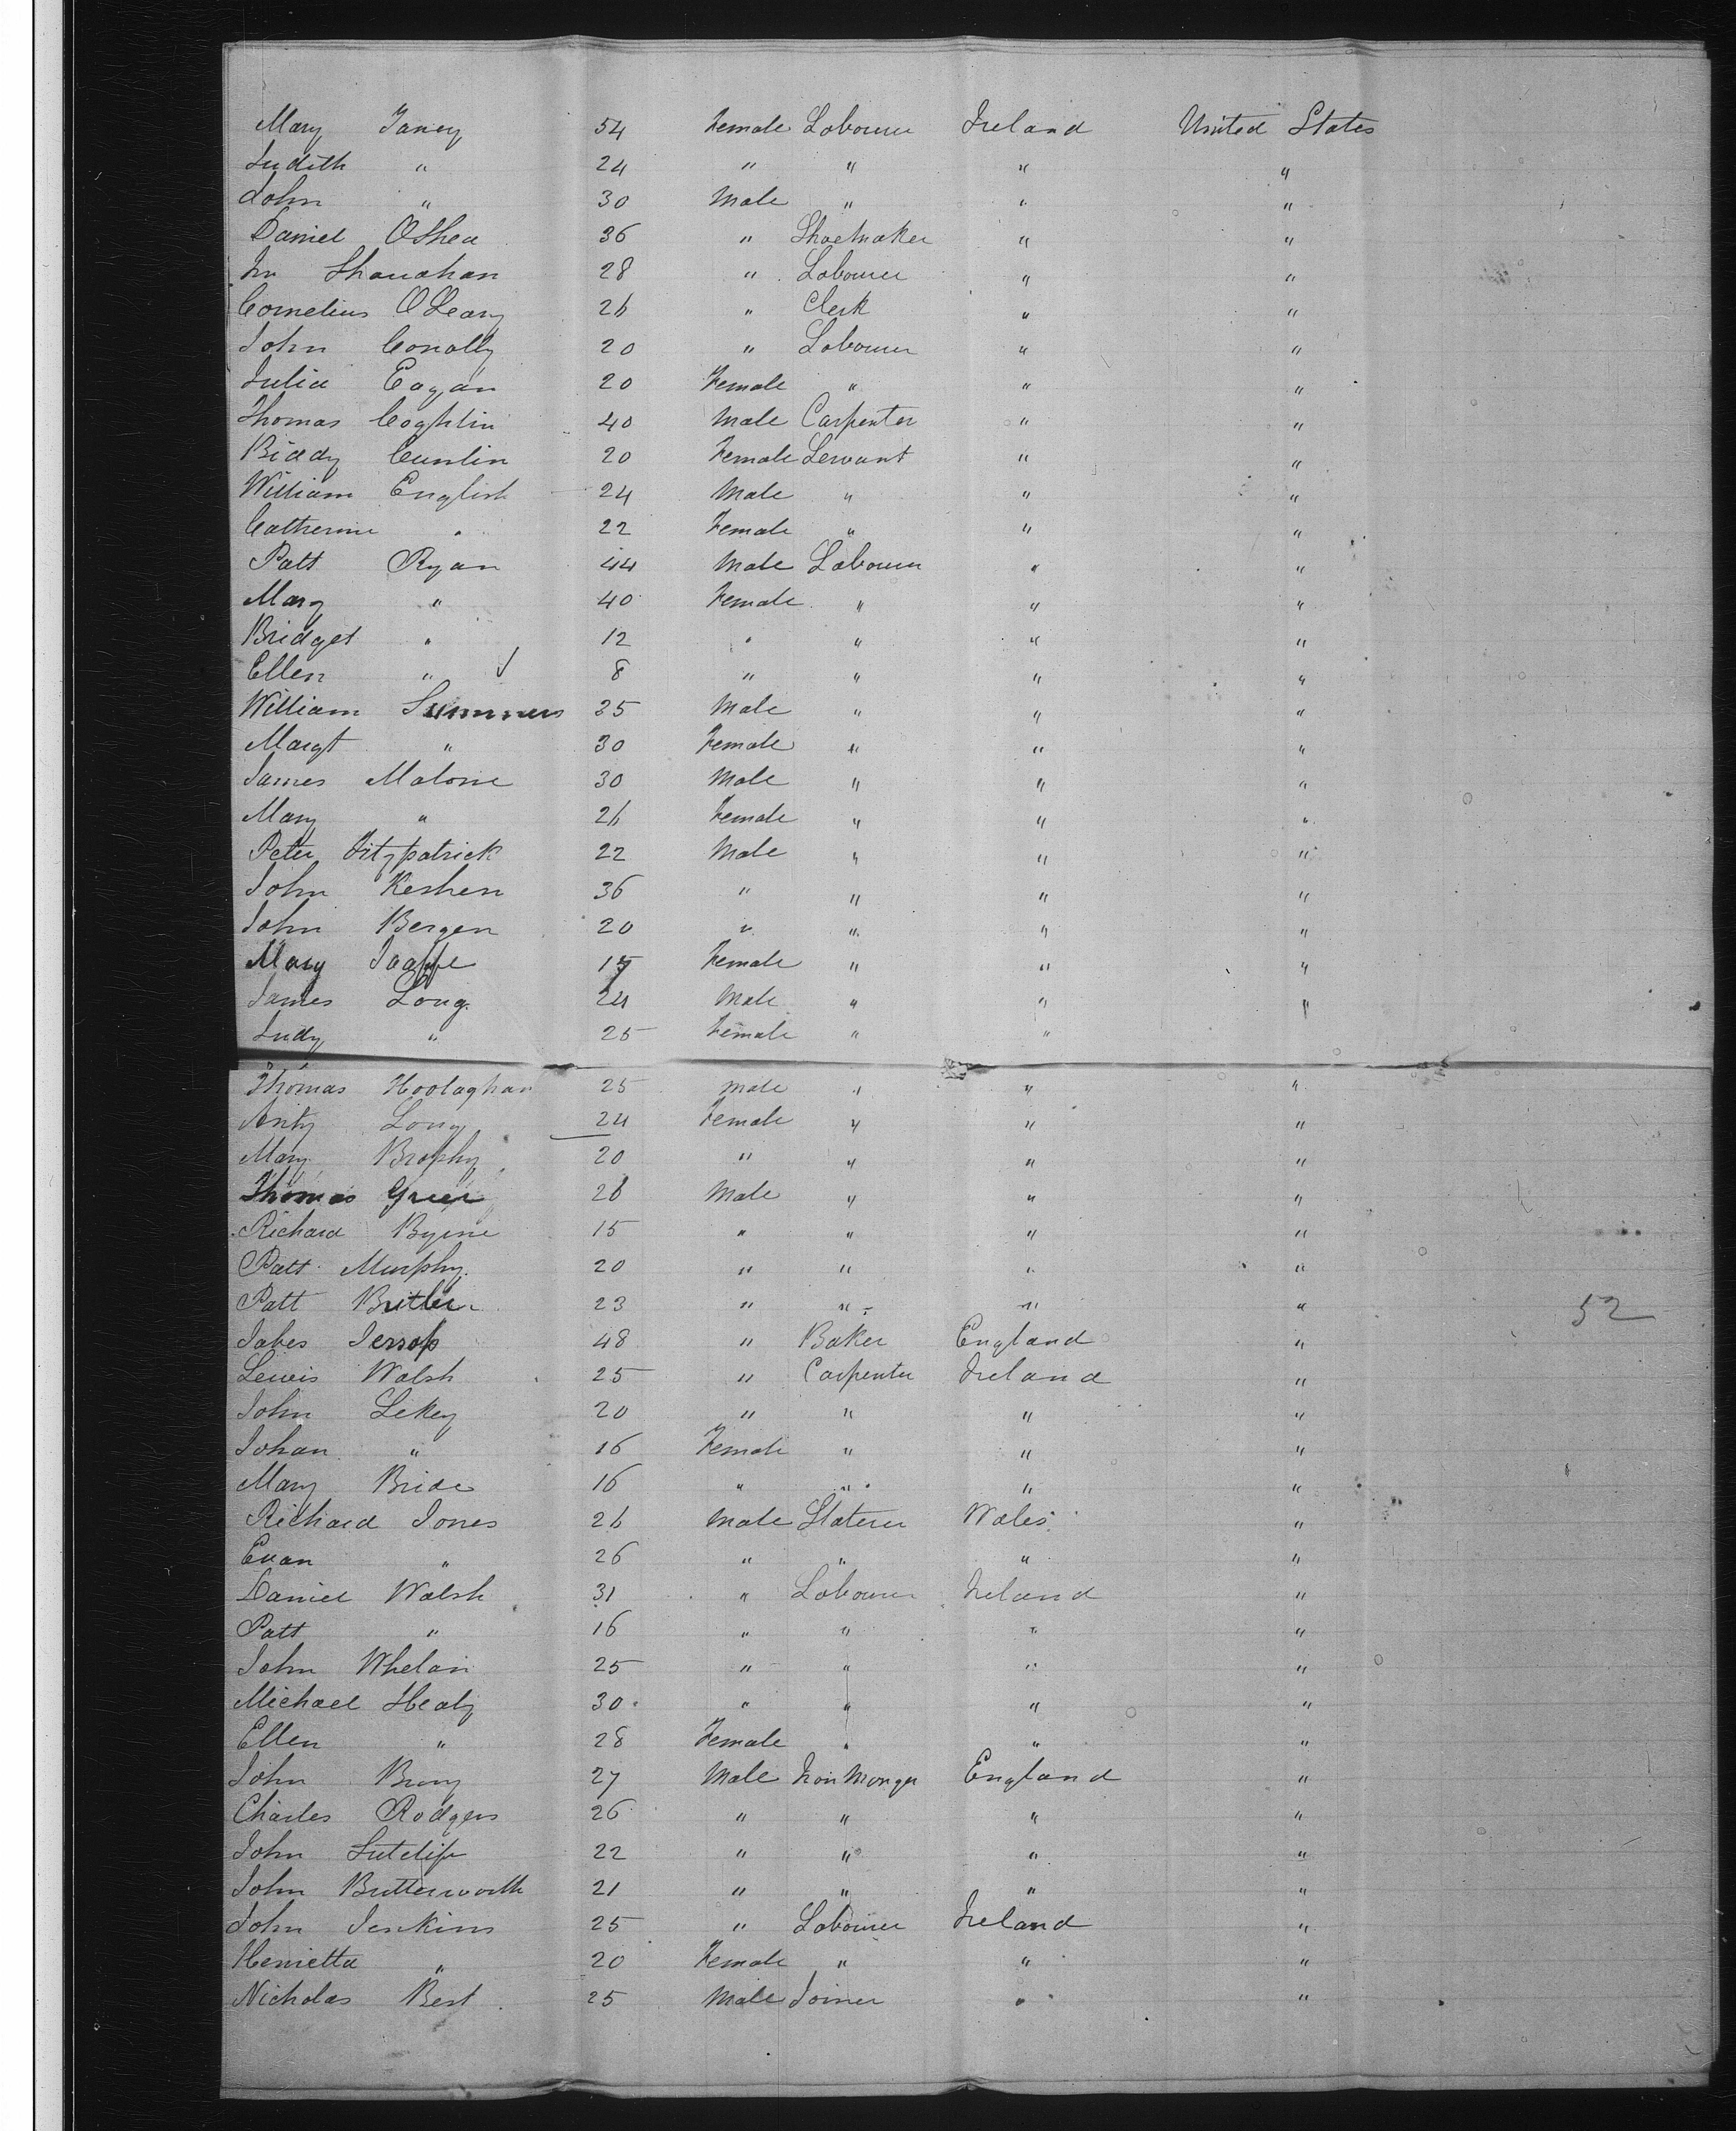 Mary Janey 54 Female Labourer Ireland United States
Judith " 24 " " " "
John " 30 Male " " "
Daniel OShea 36 " Shoemaker " "
Shanahan 28 " Labourer " "
Cornelius OLeary 26 " Clerk " "
John Conolly 20 " Labourer " "
Julia Eagan 20 Female " " "
Thomas Coghlin 40 Male Carpenter " "
Biddy Cunlin 20 Female Servant " "
William English 24 Male " " "
Catherine " 22 Female " " "
Patt Ryan 44 Male Labourer " "
Mary " 40 Female " " "
Bridget " 12 " " " "
Ellen " 8 " " " "
William Summers 25 Male " " "
Margt " 30 Female " " "
James Malone 30 Male " " "
Mary " 26 Female " " "
Peter Fitzpatrick 22 Male " " "
John Keshen 36 " " " "
John Bergen 20 " " " "
Mary Female " " "
James Long 24 Male " " "
Judy " 25 Female " "
Thomas Hoolaghan 25 Male " " "
Long 24 Female " " "
Mary Brophy 20 " " " "
Thomas Greer 26 Male " " "
Richard Byrne 15 " " " "
Patt Murphy 20 " " " "
Patt Butler 23 " " " "
52
Jabes Jessop 48 " Baker England "
Lewis Walsh 25 " Carpenter Ireland "
John Lekey 20 " " " "
Johan " 16 Female " " "
Mary Bride 16 " " " "
Richard Jones 26 Male Slaterer Wales "
Evan " 26 " " " "
Daniel Walsh 31 " Labourer Ireland "
Patt " 16 " " " "
John Whelan 25 " " " "
Michael Healy 30 " " " "
Ellen " 28 Female " " "
John 27 Male Iron Monger England "
Charles Rodgers 26 " " " "
John Sutclife 22 " " " "
John Butterworth 21 " " " "
John Jenkins 25 " Labourer Ireland "
Henrietta " 20 Female " " "
Nicholas Best 25 Male Joiner " "